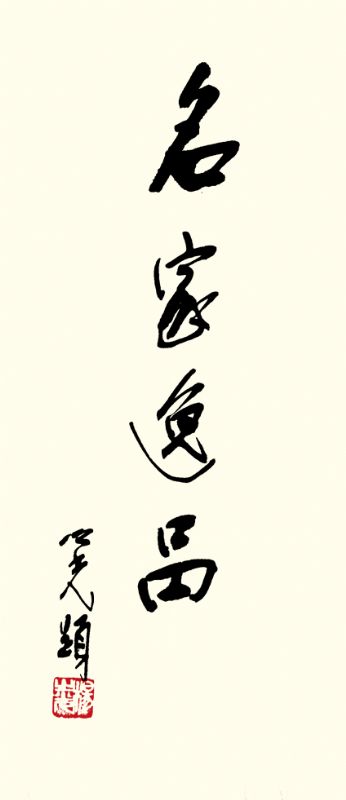 名家逸品
題